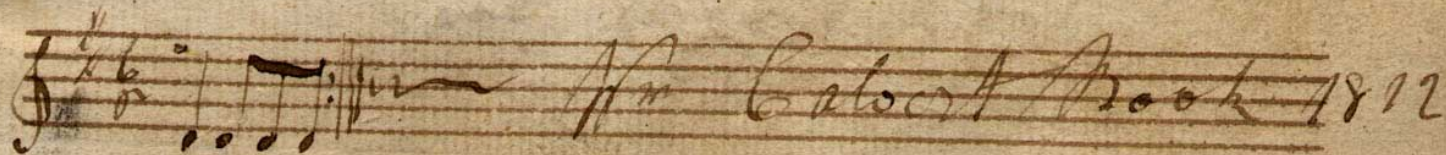 Wm Calvert Book 1812